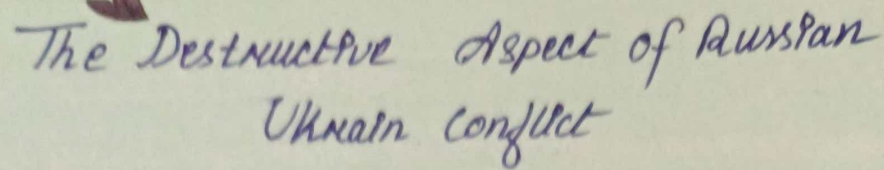 The Destructive Aspect of Russian
Ukrain Conflict